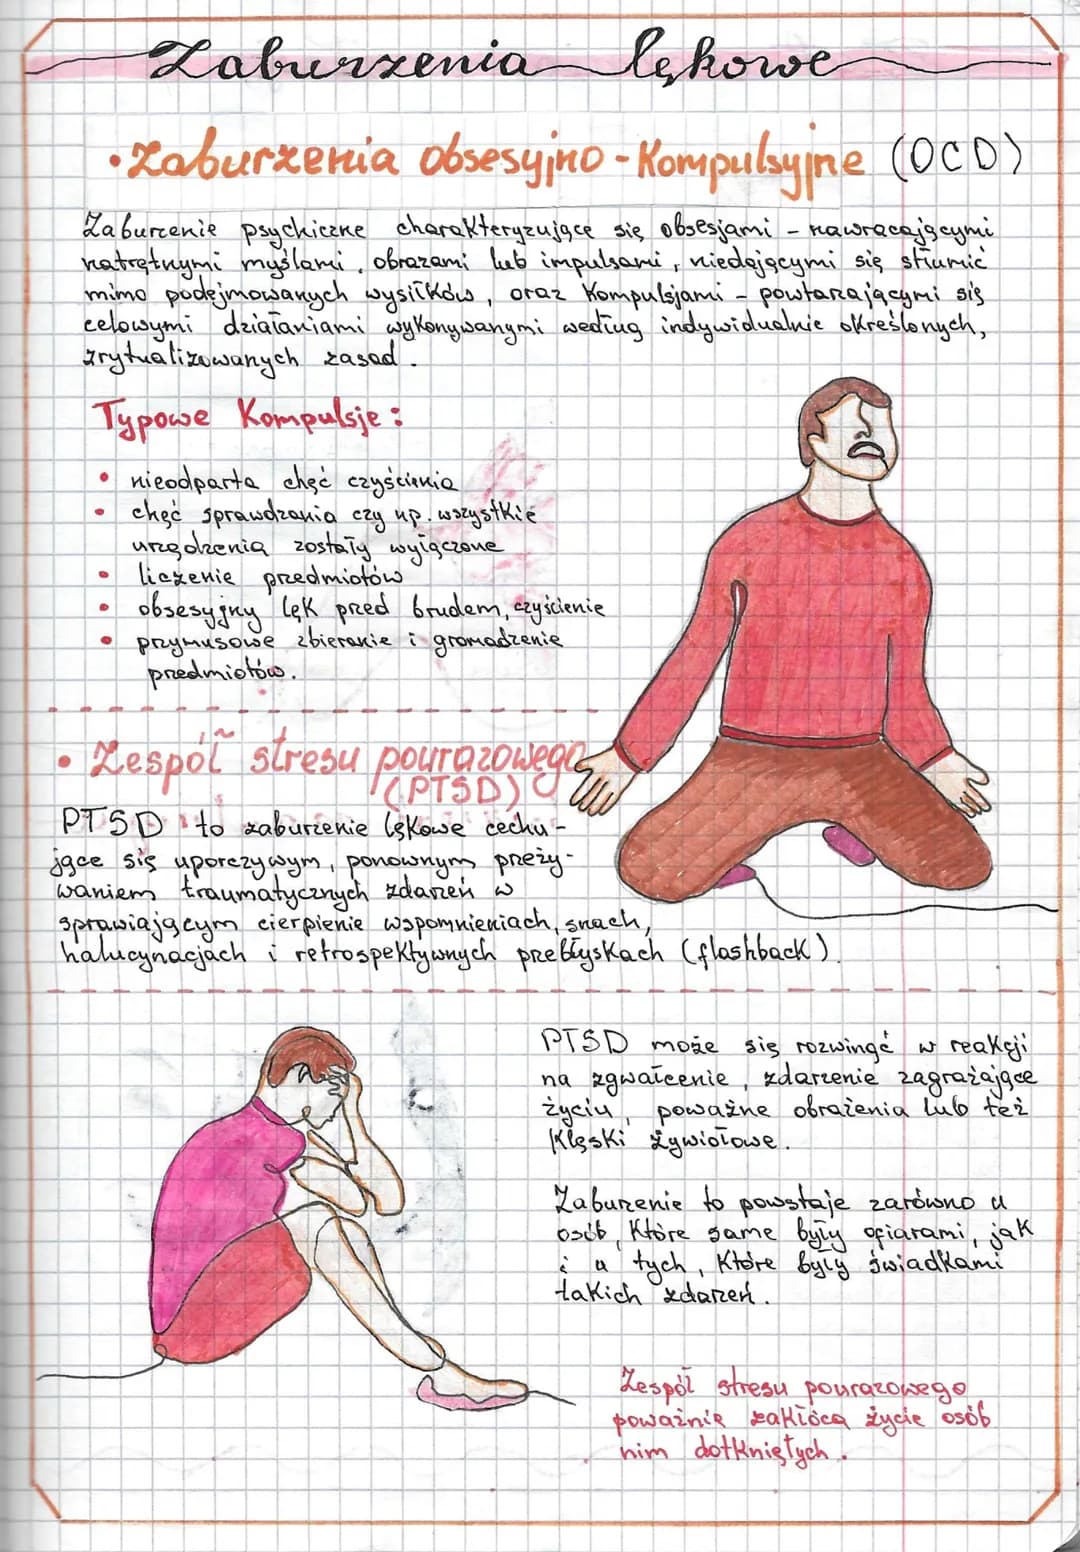 Zaburzenia lękowe
• Zaburzenia obsesyjno - Kompulsyjne (OCD)
Zaburzenie psychiczne charakteryzujące się obsesjami - nawracającymi
natrętnymi myślami, obrazami lub impulsami, niedającymi się stłumić
mimo podejmowanych wysiłków, oraz Kompulsjami - powtarzającymi się
celowymi działaniami wykonywanymi według indywidualnie określonych,
zrytualizowanych zasad.
Typowe Kompulsje:
• nieodparta chęć czyścienia
• chęć sprawdzania czy np. wszystkie
urządzenia zostały wyłączone
• liczenie przedmiotów
• obsesyjny lęk przed brudem, czyścienie
• przymusowe zbieranie i gromadzenie
przedmiotów.
• Zespół stresu pourazowego
(PTSD)
PTSD to zaburzenie lękowe cechu-
jące się uporczywym, ponownym przeży-
waniem traumatycznych zdarzeń w
sprawiającym cierpienie wspomnieniach, snach,
halucynacjach i retrospektywnych przebłyskach (flashback).
PTSD może się rozwinąć w reakcji
na zgwałcenie, zdarzenie zagrażające
życiu, poważne obrażenia lub też
Klęski żywiołowe.
Zaburzenie to powstaje zarówno u
osób, Które same były ofiarami, jak
i u tych, Które były świadkami
takich zdarzeń.
Zespół stresu pourazowego
poważnie zakłóca życie osób
nim dotkniętych.